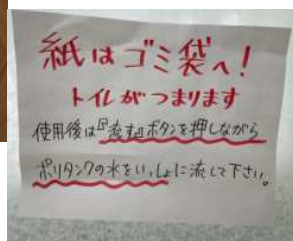 紙はゴミ袋へ!
トイレがつまります
使用後は『流す』ボタンを押しながら
ポリタンクの水をいっしょに流して下さい。